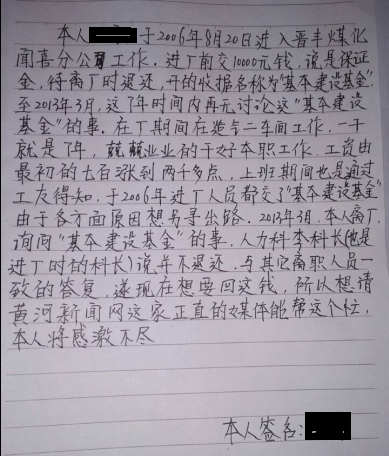 本人 于2006年8月20日进入晋丰煤化
闻喜分公司工作。进厂前交10000元钱，说是保证
金，待离厂时退还，开的收据名称为"基本建设基金"。
至2013年3月，这7年时间内再无讨论这"基本建设
基金"的事。在厂期间在造气二车间工作，一干
就是7年，兢兢业业的干好本职工作。工资由
最初的七百涨到两千多点，上班期间也是通过
工友得知，于2006年进厂人员都交了"基本建设基金"
由于各方面原因想另寻出路。2013年3月，本人离厂，
询问"基本建设基金"的事，人力科李科长(他是
进厂时的科长)说并不退还，与其它离职人员一
致的答复，遂现在想要回这钱，所以想请
黄河新闻网这家正直的媒体能帮这个忙，
本人将感激不尽
本人签名: